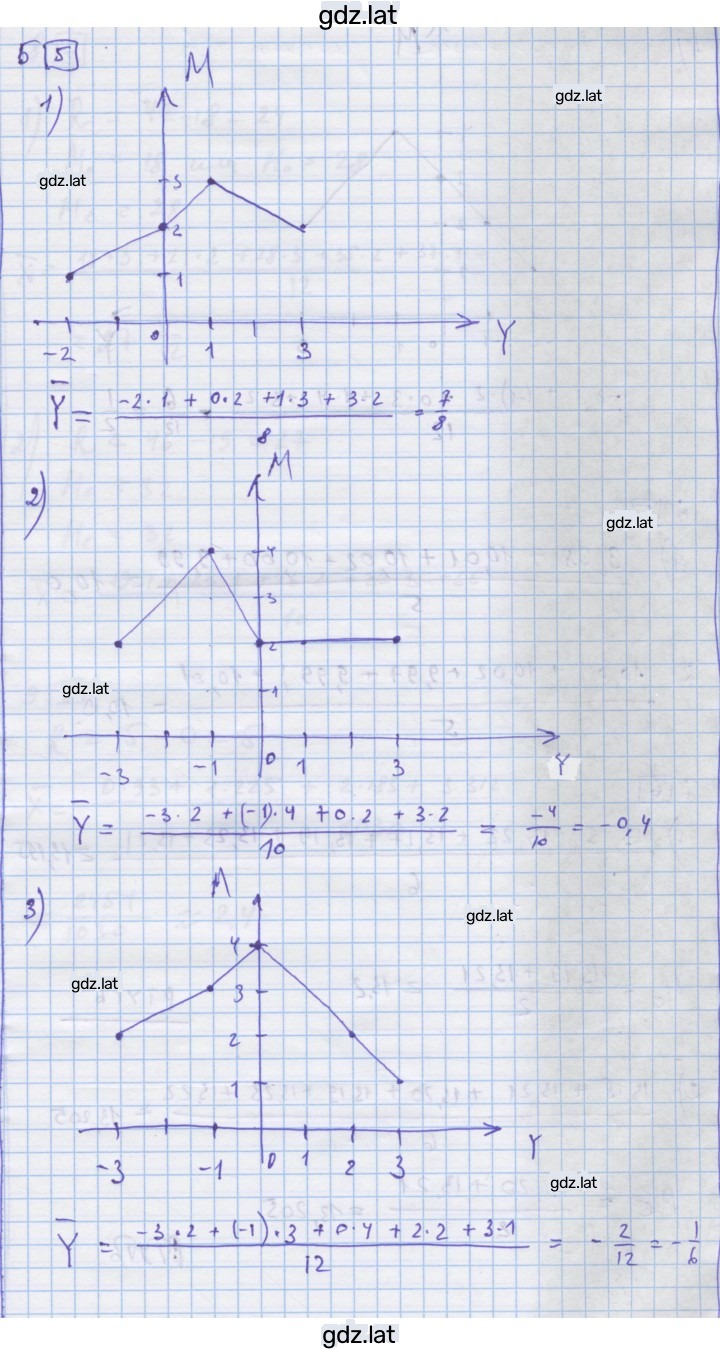 gdz.lat
5 5
M
1)
gdz.lat
gdz.lat
3
2
1
-2 0 1 3 Y
Y̅ = (-2·1 + 0·2 + 1·3 + 3·2)/8 = 7/8
M
2)
gdz.lat
4
3
2
gdz.lat
1
-3 -1 0 1 3 Y
Y̅ = (-3·2 + (-1)·4 + 0·2 + 3·2)/10 = -4/10 = -0,4
M
3)
gdz.lat
4
gdz.lat
3
2
1
-3 -1 0 1 2 3 Y
gdz.lat
Y̅ = (-3·2 + (-1)·3 + 0·4 + 2·2 + 3·1)/12 = -2/12 = -1/6
gdz.lat